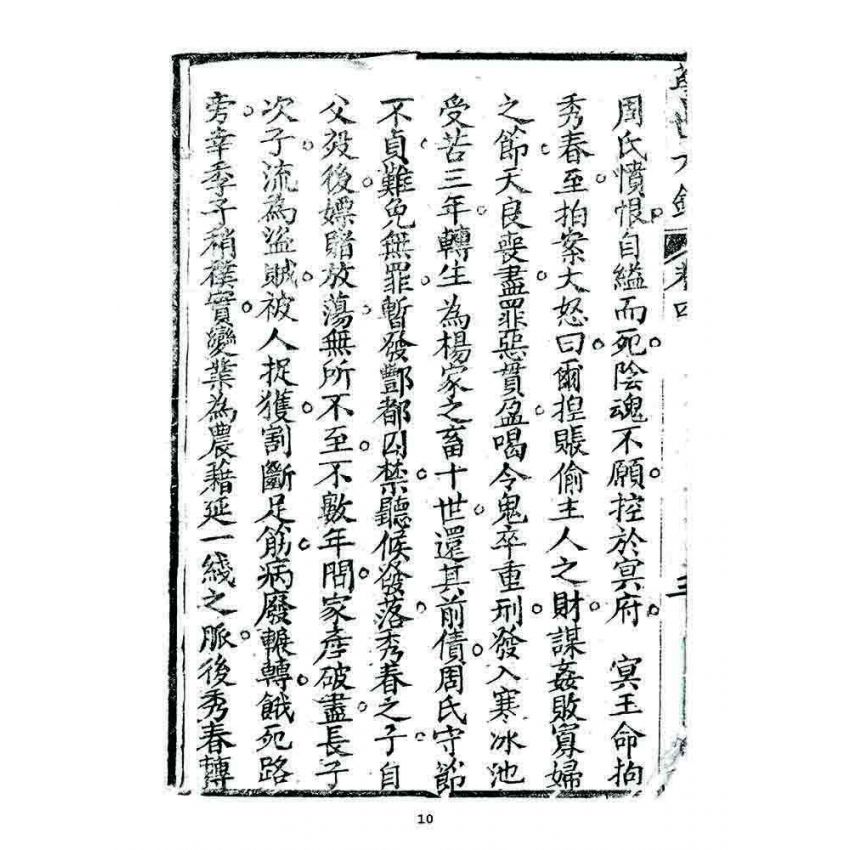 周氏憤恨自縊而死陰魂不願控於冥府 冥王命拘
秀春至拍案大怒曰爾揑賬偷主人之財謀姦敗寡婦
之節天良喪盡罪惡貫盈喝令鬼卒重刑發入寒冰池
受苦三年轉生為楊家之畜十世還其前債周氏守節
不貞難免無罪暫發酆都囚禁聽候發落秀春之子自
父歿後嫖賭放蕩無所不至不數年間家產破盡長子
次子流為盜賊被人捉獲割斷足筋病廢輾轉餓死路
旁幸季子稍樸實變業為農藉延一綫之脈後秀春轉
卷四
10